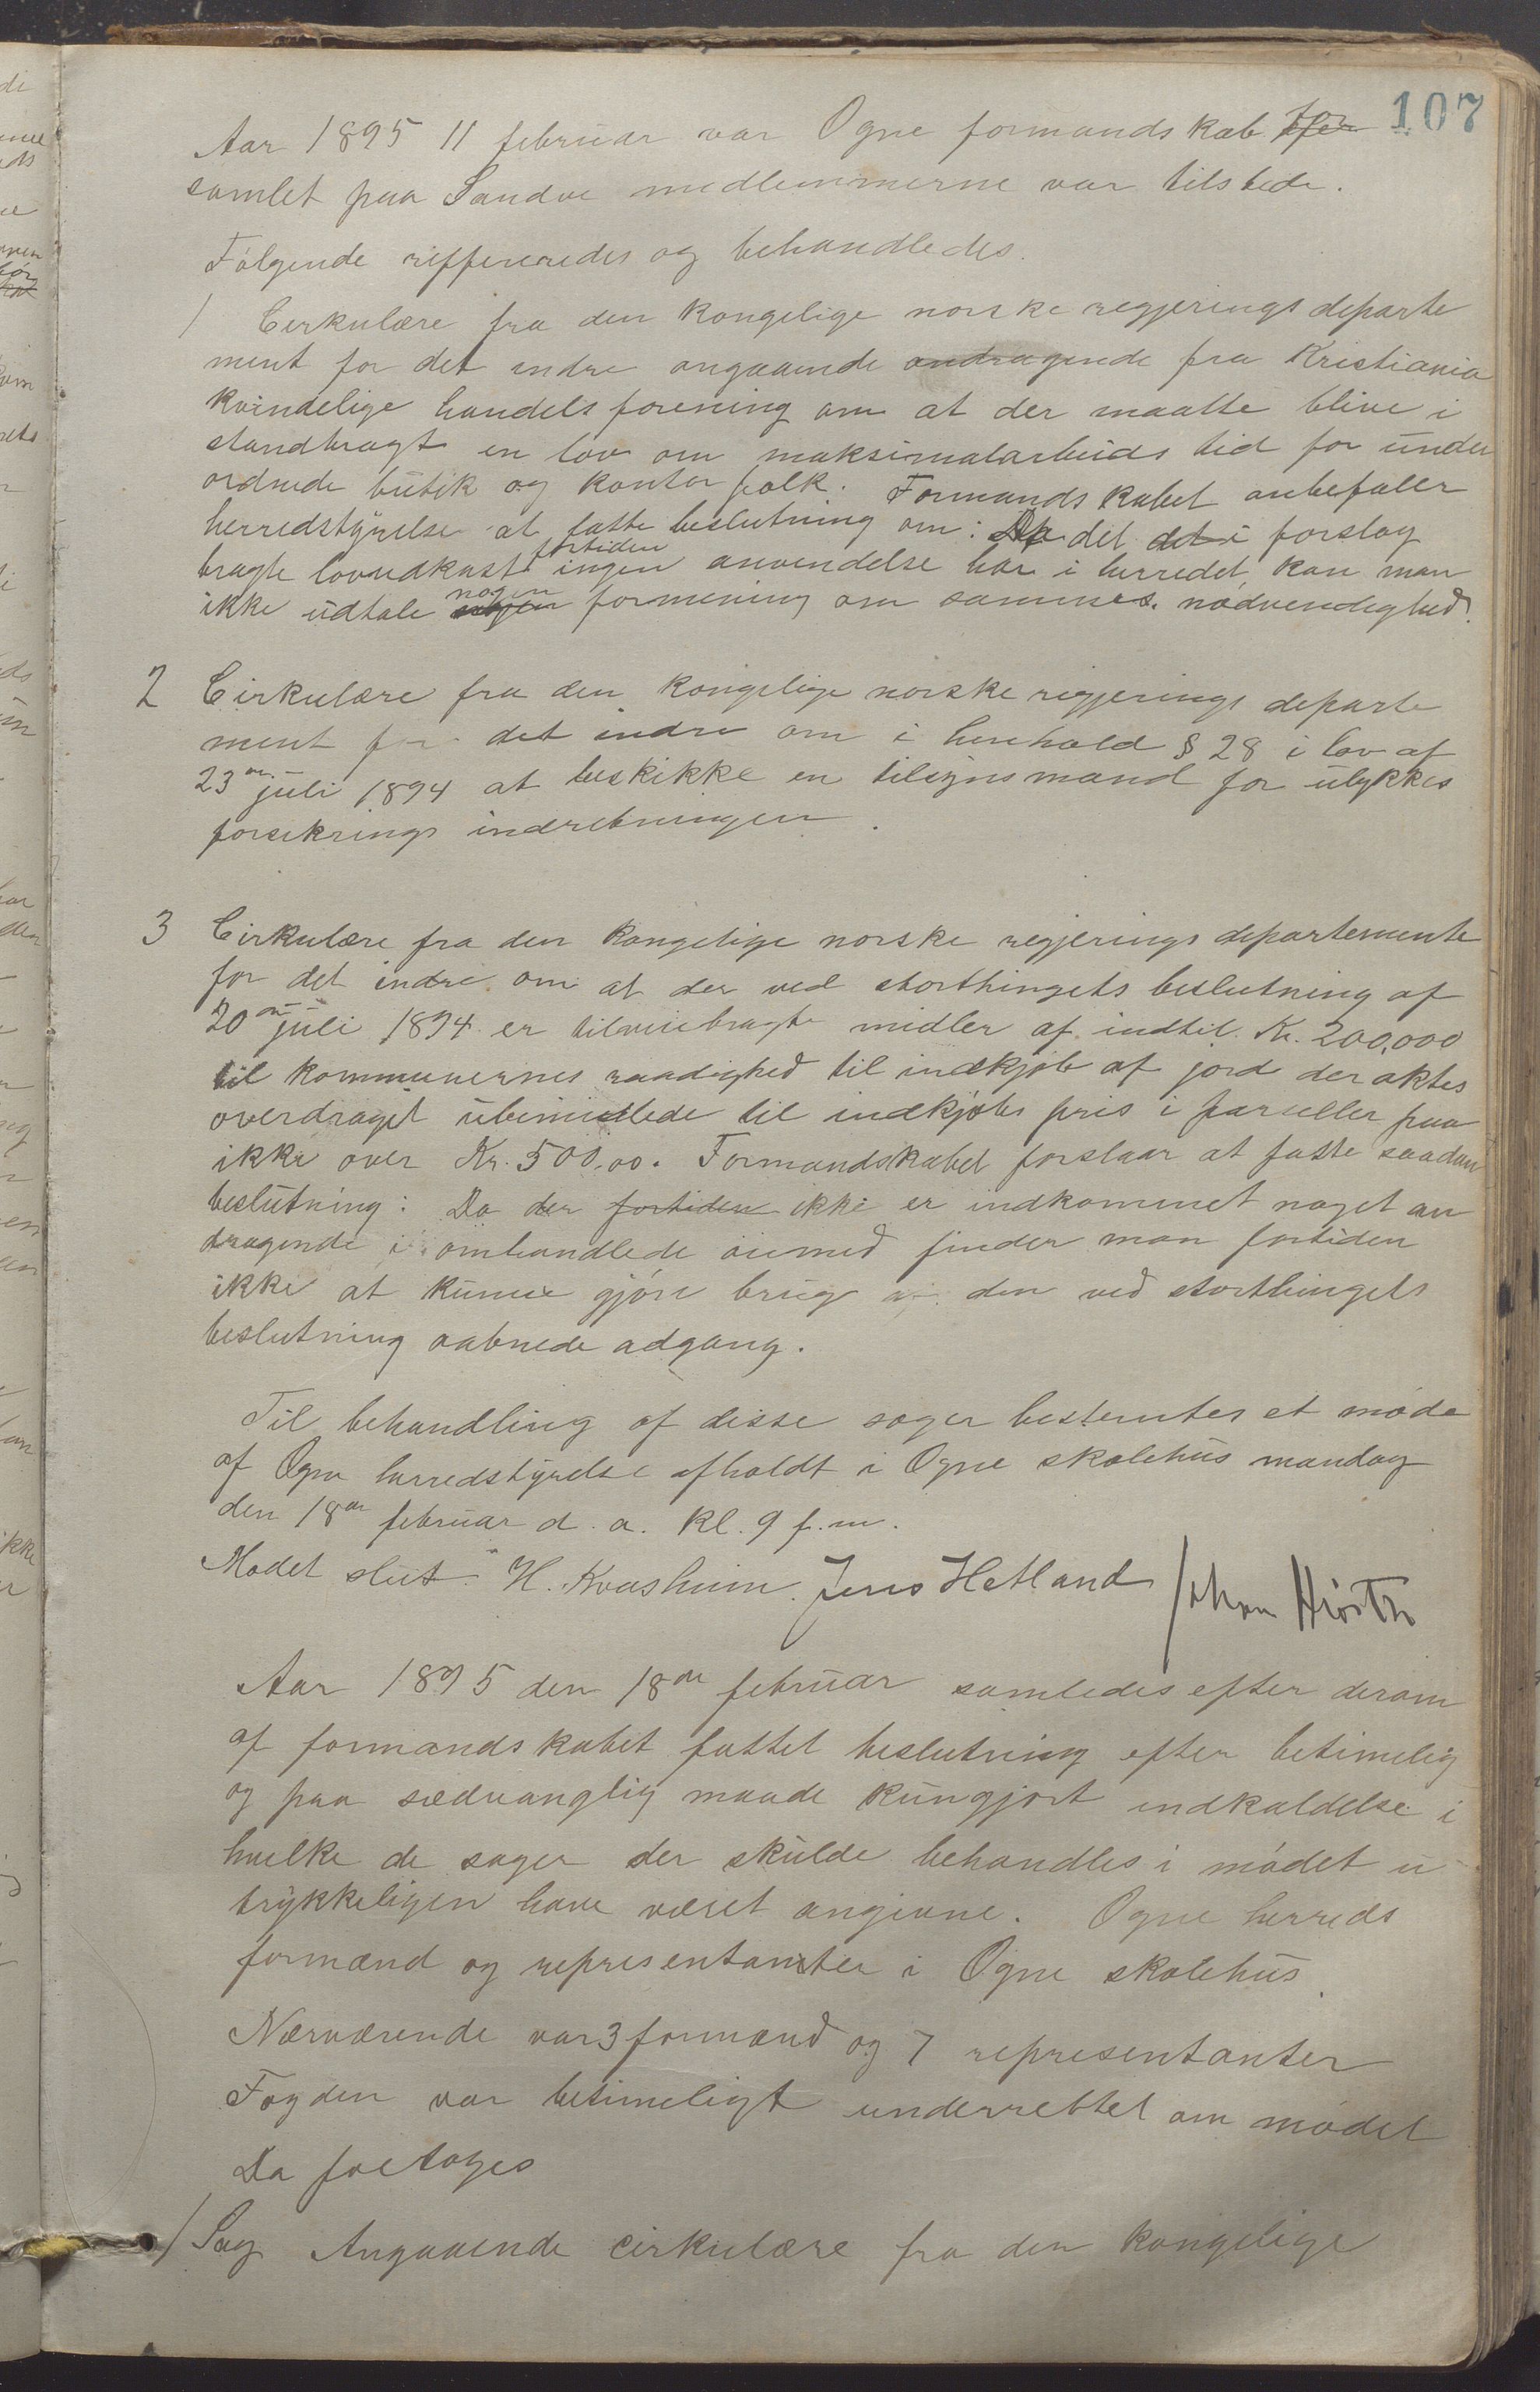 107
Aar 1895 11 februar var Ogne formandskab for
samlet paa Sandve medlemmerne var tilstede.
Følgende riffereredes og behandledes.
1 Cirkulære fra den kongelige norske regjerings departe
ment for det indre angaaende andragende fra Kristiania
kvindelige handelsforening om at der maatte blive i
standbragt en lov om maksimalarbeids tid for under
ordnede butik og kontor folk. Formandskabet anbefaler
herredstyrelse at fatte beslutning om: Da det det i forslag
bragte lovudkast fortiden ingen anvendelse har i herredet, kan man
ikke udtale nogen formening om sammes nødvendighed.
2 Cirkulære fra den kongelige norske regjerings departe
ment for det indre om i henhold § 28 i lov af
23de juli 1894 at beskikke en tilsynsmand for ulykkes
forsikrings indretningen.
3 Cirkulære fra den kongelige norske regjerings departemente
for det indre om at der ved storthingets beslutning af
20de juli 1894 er tilveiebragte midler af indtil Kr. 200,000
til kommunernes raadighed til indkjøb af jord der aktes
overdraget ubemidlede til indkjøbs pris i parseller paa
ikke over Kr. 500,00. Formandskabet forslaar at fatte saadan
beslutning: Da der fortiden ikke er indkommet noget an
dragende i omhandlede øiemed finder man fortiden
ikke at kunne gjøre brug af den ved storthingets
beslutning aabnede adgang.
Til behandling af disse sager bestemtes et møde
af Ogne herredstyrelse afholdt i Ogne skolehus mandag
den 18de februar d. a. Kl. 9 f.m.
Mødet slut. H. Kvasheim. Jens Hetland Johan
Aar 1895 den 18de februar samledes efter derom
af formandskabet fattet beslutning efter betimelig
og paa sædvanglig maade kungjort indkaldelse i
hvilke de sager der skulde behandles i mødet u
trykkeligen have været angivne. Ogne herreds
formænd og representanter i Ogne skolehus.
Nærværende var 3 formænd og 7 representanter
Fogden var betimeligt underrettet om mødet
Da foetoges
1 Sag Angaaende cirkulære fra den kongelige